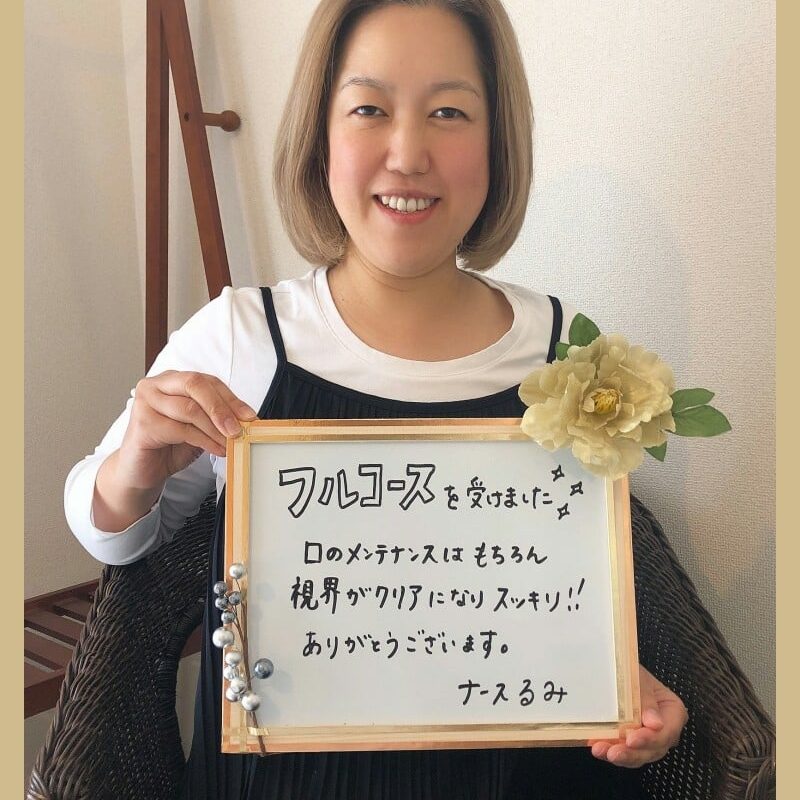 フルコースを受けました
口のメンテナンスはもちろん
視界がクリアになりスッキリ!!
ありがとうございます。
ナースるみ